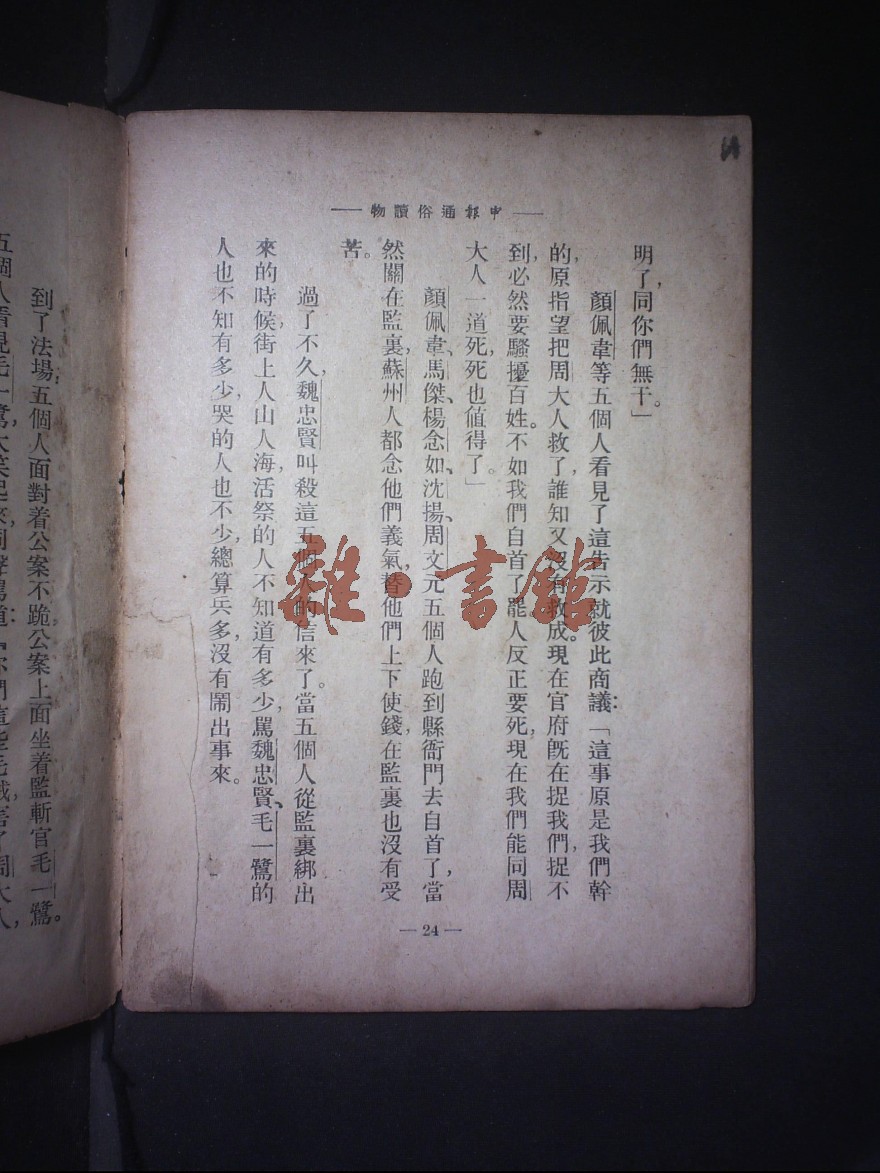 物讀俗通報申
明了，同你們無干。」
顏佩韋等五個人看見了這告示，就彼此商議：「這事原是我們幹
的，原指望把周大人救了，誰知又沒有救成。現在官府旣在捉我們，捉不
到，必然要騷擾百姓。不如我們自首了罷。人反正要死，現在我們能同周
大人一道死，死也値得了。」
顏佩韋、馬傑、楊念如、沈揚、周文元五個人跑到縣衙門去自首了，當
然關在監裏。蘇州人都念他們義氣，替他們上下使錢，在監裏也沒有受
苦。
過了不久，魏忠賢叫殺這五個人的信來了。當五個人從監裏綁出
來的時候，街上人山人海，活祭的人不知道有多少，罵魏忠賢、毛一鷺的
人也不知有多少，哭的人也不少，總算兵多，沒有鬧出事來。
24
到了法場，五個人面對着公案不跪。公案上面坐着監斬官毛一鷺。
五個人看見毛一鷺，大笑起來，同聲罵道：『你們這些毛賊，害了周大人，
雜·書館